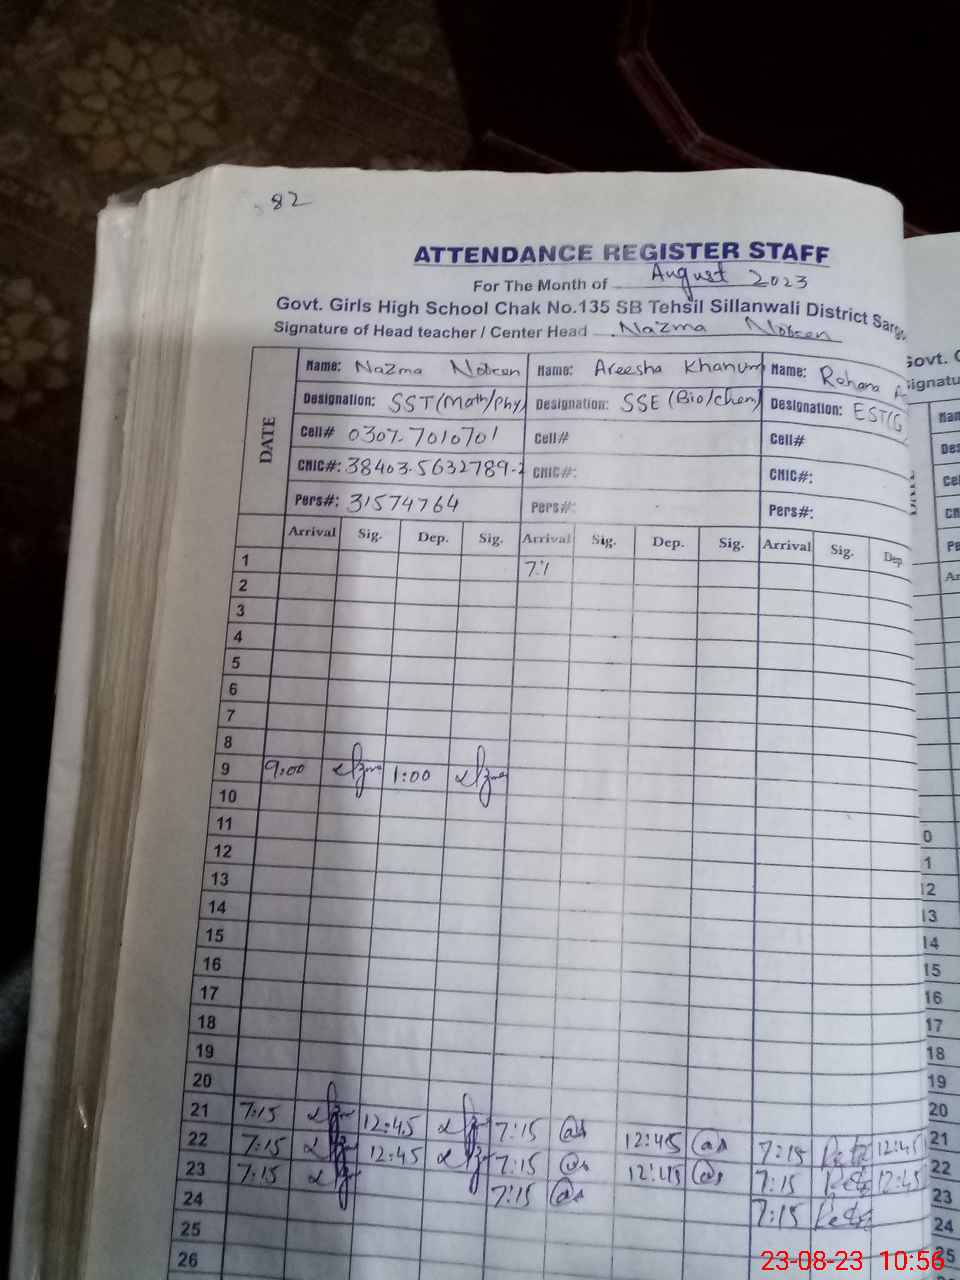 82
ATTENDANCE REGISTER STAFF
For The Month of August 2023
Govt. Girls High School Chak No.135 SB Tehsil Sillanwali District Sargo
Signature of Head teacher / Center Head Nazma Nobeen
DATE
Name: Nazma Nobeen Name: Areesha Khanum Name: Rohana
Designation: SST(Math/Phy) Designation: SSE (Bio/chem) Designation: EST(G
Cell# 0307-7010701 Cell# Cell#
CNIC#: 38403-5632789-2 CNIC#: CNIC#:
Pers#: 31574764 Pers#: Pers#:
Arrival Sig. Dep. Sig. Arrival Sig. Dep. Sig. Arrival Sig. Dep
1 7:1
2
3
4
5
6
7
8
9 9:00 1:00
10
11
12
13
14
15
16
17
18
19
20
21 7:15 12:45 7:15 12:45 7:15 12:45
22 7:15 12:45 7:15 12:45 7:15 12:45
23 7:15 7:15 7:15
24
25
26
Govt. G
Signatu
Nam
Des
Cel
CN
Pe
Ar
0
1
12
13
14
15
16
17
18
19
20
21
22
23
24
25
23-08-23 10:56